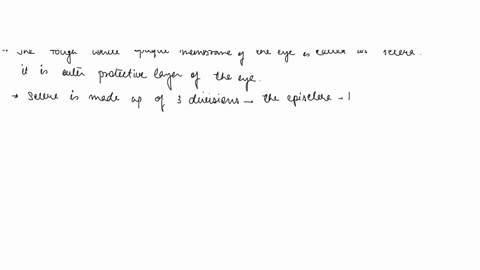 → The tough white opaque membrane of the eye is called as sclera.
it is outer protective layer of the eye.
→ Sclera is made up of 3 divisions → the episclera - 1